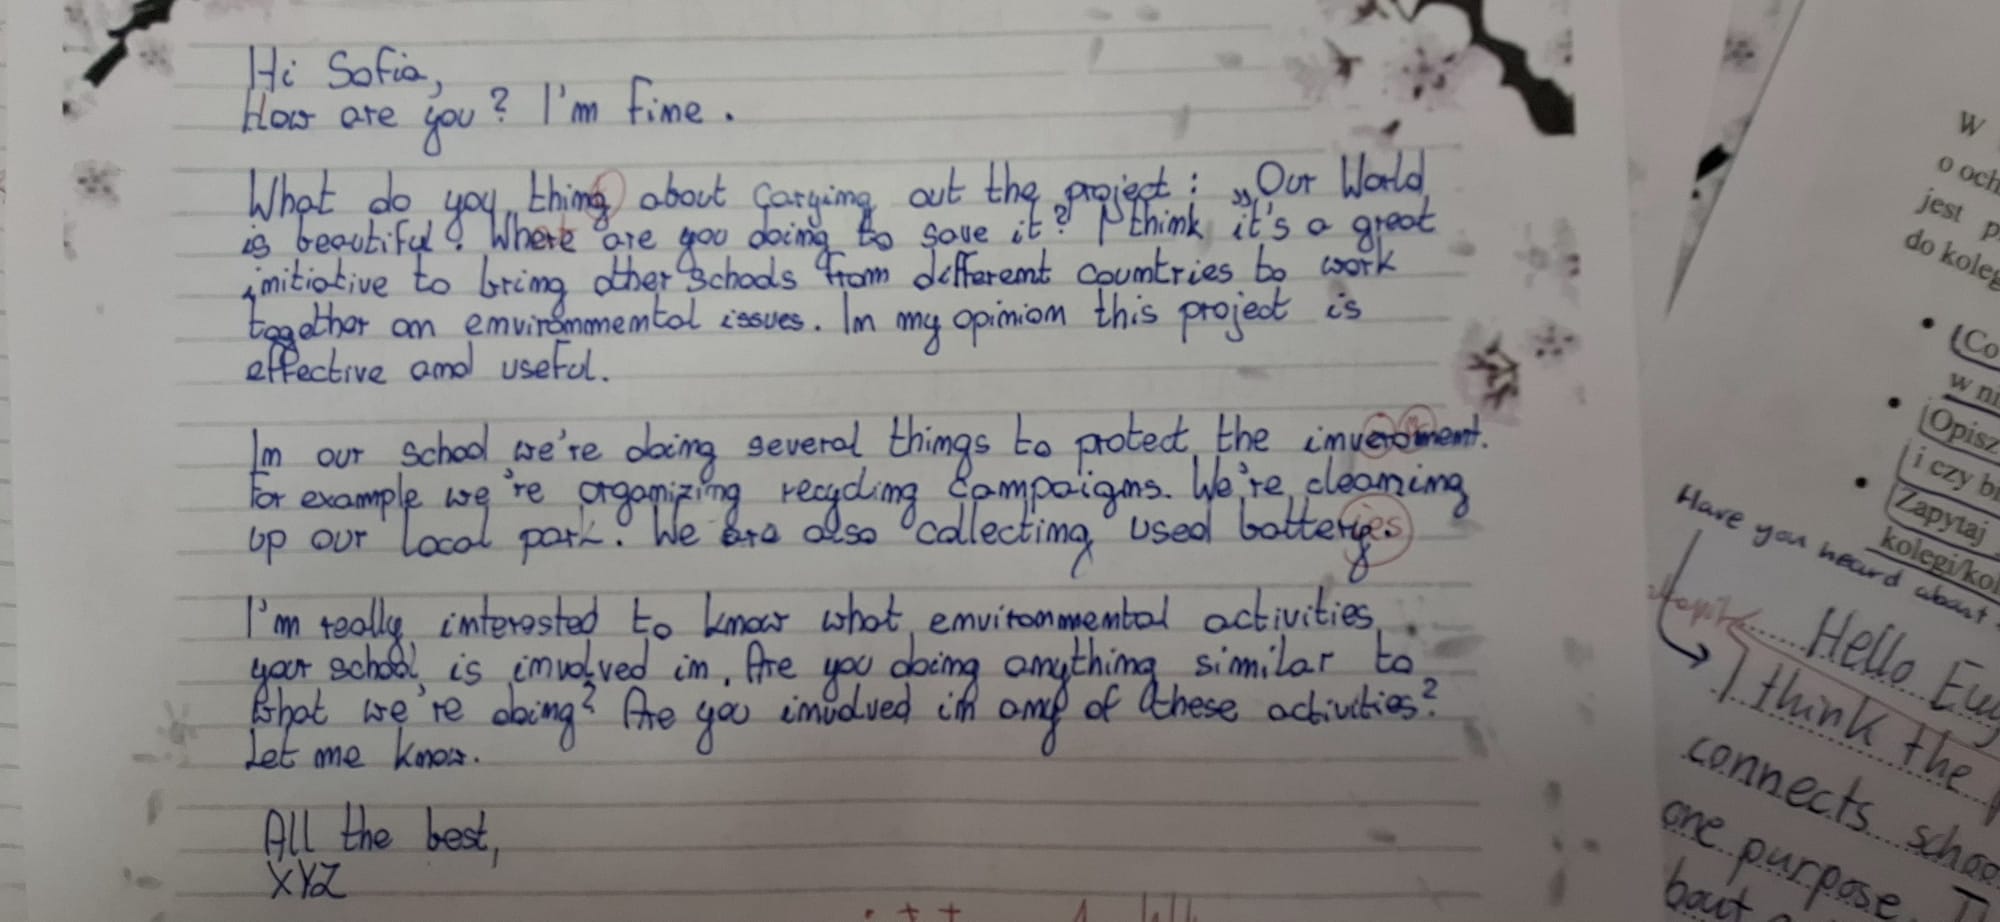 Hi Sofia,
How are you? I'm fine.
What do you thing about carying out the project: „Our World
is beautiful. Where are you doing to save it? I think it's a great
initiative to bring other schools from different countries to work
together on environmental issues. In my opinion this project is
effective and useful.
In our school we're doing several things to protect the inveroment.
For example we're organizing recycling campaigns. We're cleaning
up our local park. We are also collecting used batteryies
I'm really interested to know what environmental activities
your school is involved in. Are you doing anything similar to
what we're doing? Are you involved in any of these activities?
Let me know.
All the best,
XYZ
W
o och
jest p
do koleg
• (Co
w ni
• Opisz
i czy bi
• Zapytaj
kolegi/kol
Have you heard about
Hello Eu
I think the
connects schoo
one purpose. T
bout